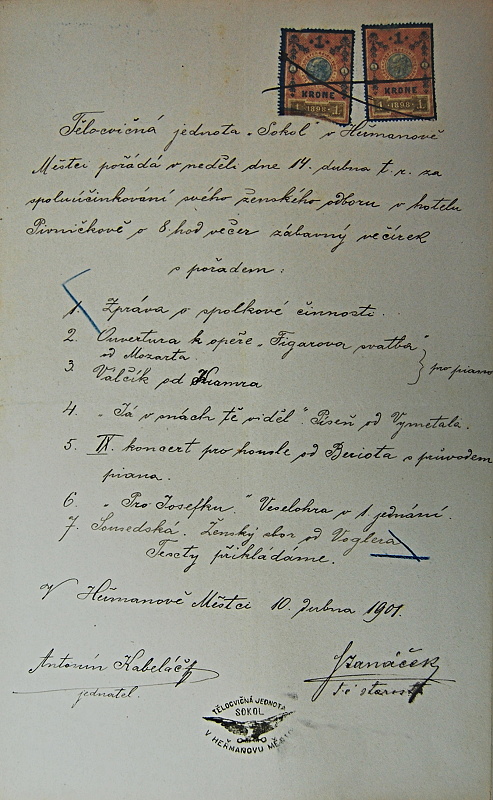 1 1
KRONE KRONE
1 1898 1 1 1898 1
Tělocvičná jednota „Sokol" v Heřmanově
Městci pořádá v neděli dne 14. dubna t. r. za
spoluúčinkování svého ženského odboru v hotelu
Pivničkově o 8. hod večer zábavný večírek
s pořadem:
1. Zpráva o spolkové činnosti.
2. Ouvertura k opeře „Figarova svatba"
od Mozarta.
3 Valčík od } pro piano
4. „Já v snách tě viděl". Píseň od Vymetala.
5. IX. koncert pro housle od Beriota s průvodem
piana.
6. „Pro Josefku." Veselohra v 1 jednání.
7. Sousedská. Ženský sbor od Voglera
Texty přikládáme.
V Heřmanově Městci 10. dubna 1901.
Antonín Kabeláč
jednatel.
Janáček
starosta
TĚLOCVIČNÁ JEDNOTA
SOKOL
V HEŘMANOVU MĚSTCI